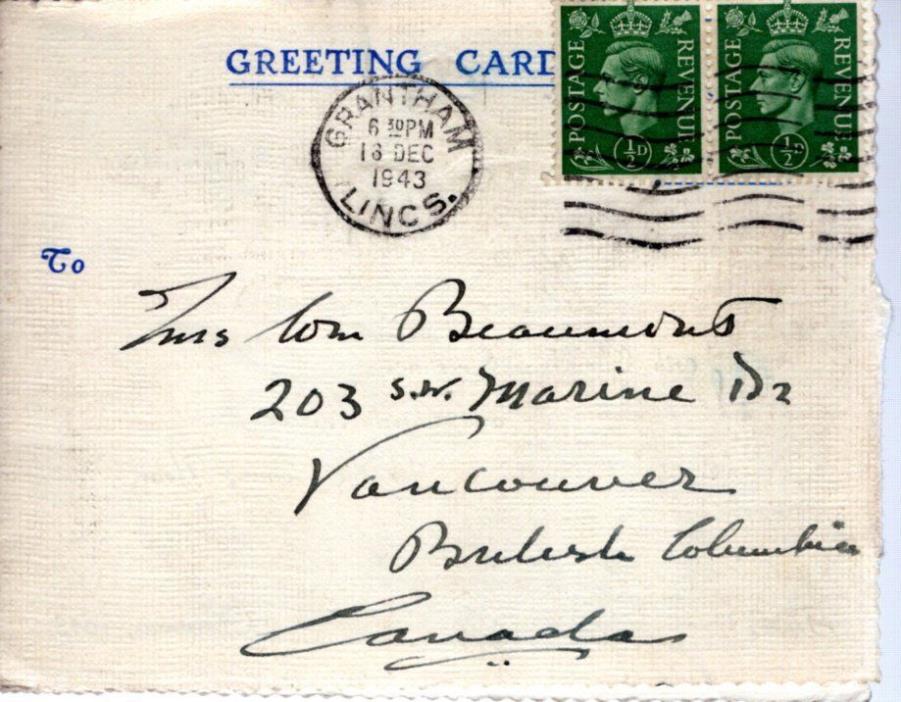 GREETING CARD
POSTAGE REVENUE ½D
POSTAGE REVENUE ½D
GRANTHAM
6 30 PM
16 DEC
1943
LINCS.
To
Mrs Wm Beaumont
203 S.W. Marine Dr
Vancouver
British Columbia
Canada